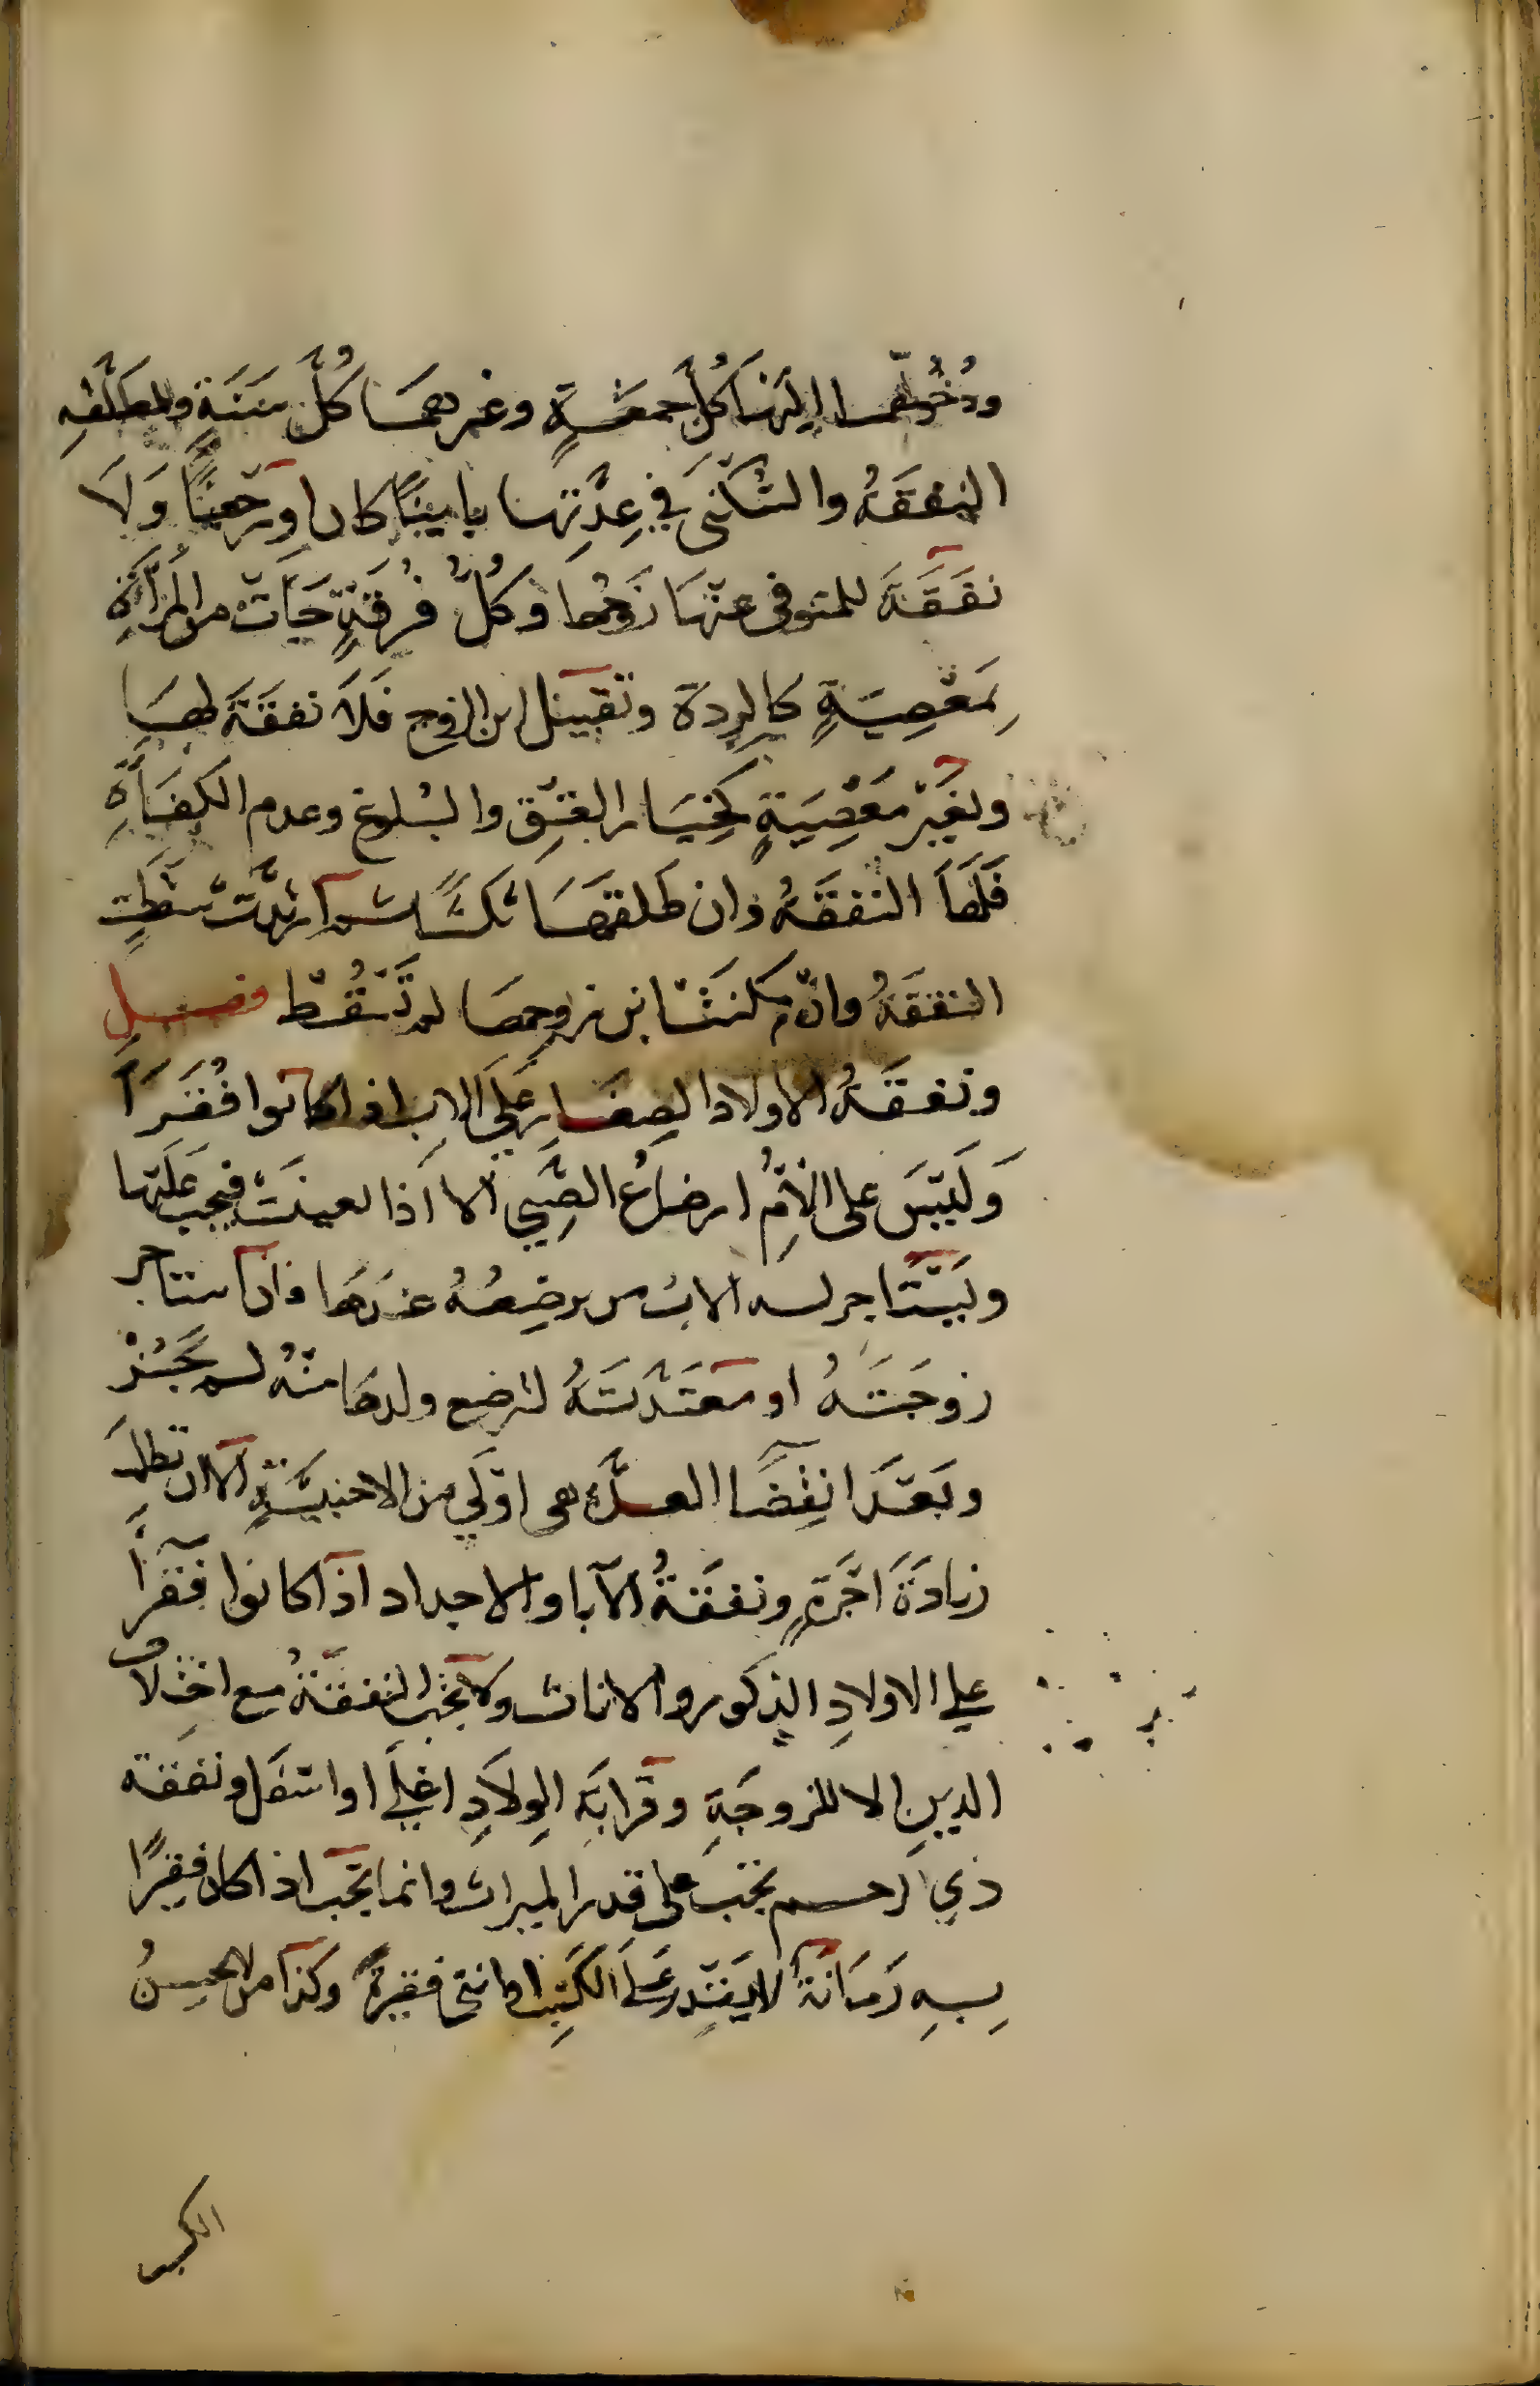 ودُخُولهما اليَها كُلَّ جمعَةٍ وغيرهمَا كُلَّ سَنَةٍ وللمطلّقةِ
النفقَةُ والسُّكنَى في عِدَّتِها باينًا كان او رَجعيًّا وَلَا
نفَقَةَ للمتوفى عنهَا زَوجُها وَكُلُّ فُرقَةٍ جَآت من المرأةِ
بمَعْصِيَةٍ كالردة وتقبيل ابن الزوج فَلَا نفقَةَ لهَا
وبغَيْر مَعْصِيَةٍ كَخِيَار العِتْقِ والبُلوغ وعدم الكفَآةِ
فَلَهَا النفقَةُ وان طلقهَا ثلَاثًا ثم ارتدَّت سَقَطَتِ
النفقَةُ وان مكنَتْ ابن زوجها لم تَسْقُط فصل
ونفقَةُ الاولاد الصِغَارِ عَلَى الاب اذا كانوا فُقَرَآ
وَلَيْسَ على الاُمّ ارضَاعُ الصَّبِي الا اذا تعينَتْ فيجب عَلَيها
ويَسْتَاجر له الابُ من يرضِعُهُ عندَهَا فان استاجر
زوجَتَهُ او معتَدتَهُ لترضع ولدهَا منْهُ لم يَجُزْ
وبَعْدَ انقِضَآ العدَّةِ هى اوْلَى من الاجنبيَّةِ الا ان تطلبَ
زيادَةَ اجْرَةٍ ونفقَةُ الآبا والاجداد اذا كانوا فُقَرَآ
على الاولادِ الذكور والاناث ولا تجب النفقَةُ مع اختِلَاف
الدينِ الا للزوجَةِ وقرابَةِ الوِلَادِ اعْلَى او اسْفَل ونفقة
ذي الرحم تجب على قدر الميراث وانما تَجب اذا كان فقيرًا
بِهِ زَمَانَةٌ لا يَقْدِر عَلَى الكَسْبِ او انثى فقيرةً وكذا من لا يحسِنُ
الكسب